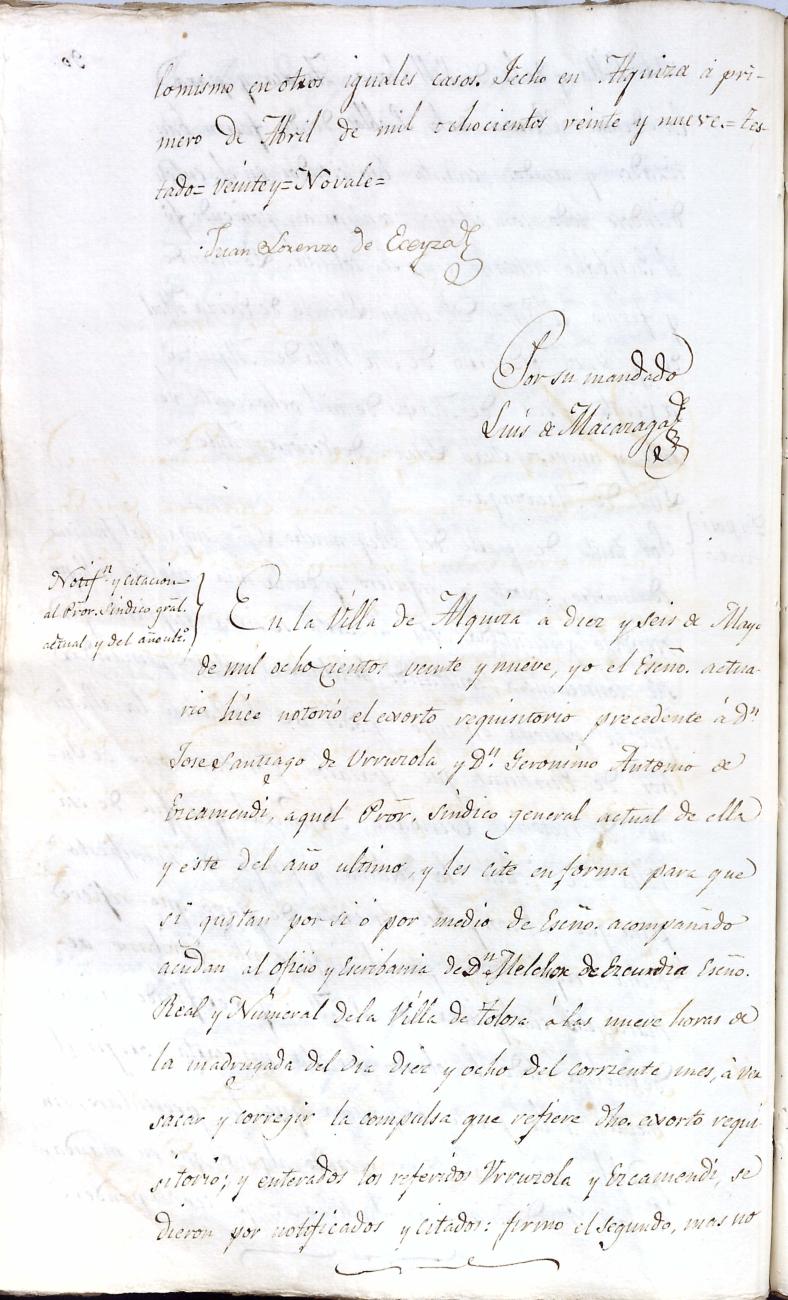 lo mismo en otros iguales casos. Fecho en Alquiza á pri-
mero de Abril de mil ochocientos veinte y nueve.= Tes-
tado= veinte y= No vale=
Juan Lorenzo de Eceyza
Por su mandado
Luis de Macazaga
Notifn. y citacion
al Pror. Sindico gral.
actual, y del año ulto.
En la Villa de Alquiza á diez y seis de Mayo
de mil ochocientos veinte y nueve, yo el Esño. actua-
rio hice notorio el exorto requisitorio precedente á Dn.
Jose Santiago de Urruzola y Dn. Geronimo Antonio de
Ezcamendi, aquel Pror. sindico general actual de ella
y este del año ultimo, y les cité en forma para que
si gustan por si ó por medio de Esño. acompañado
acudan al oficio y Escribania de Dn. Melchor de Ezcurdia Esño.
Real y Numeral de la Villa de Tolosa á las nueve horas de
la madrugada del dia diez y ocho del corriente mes, á ver
sacar y corregir la compulsa que refiere dho. exorto requi-
sitorio; y enterados los referidos Urruzola y Ezcamendi, se
dieron por notificados y citados: firmo el segundo, mas no